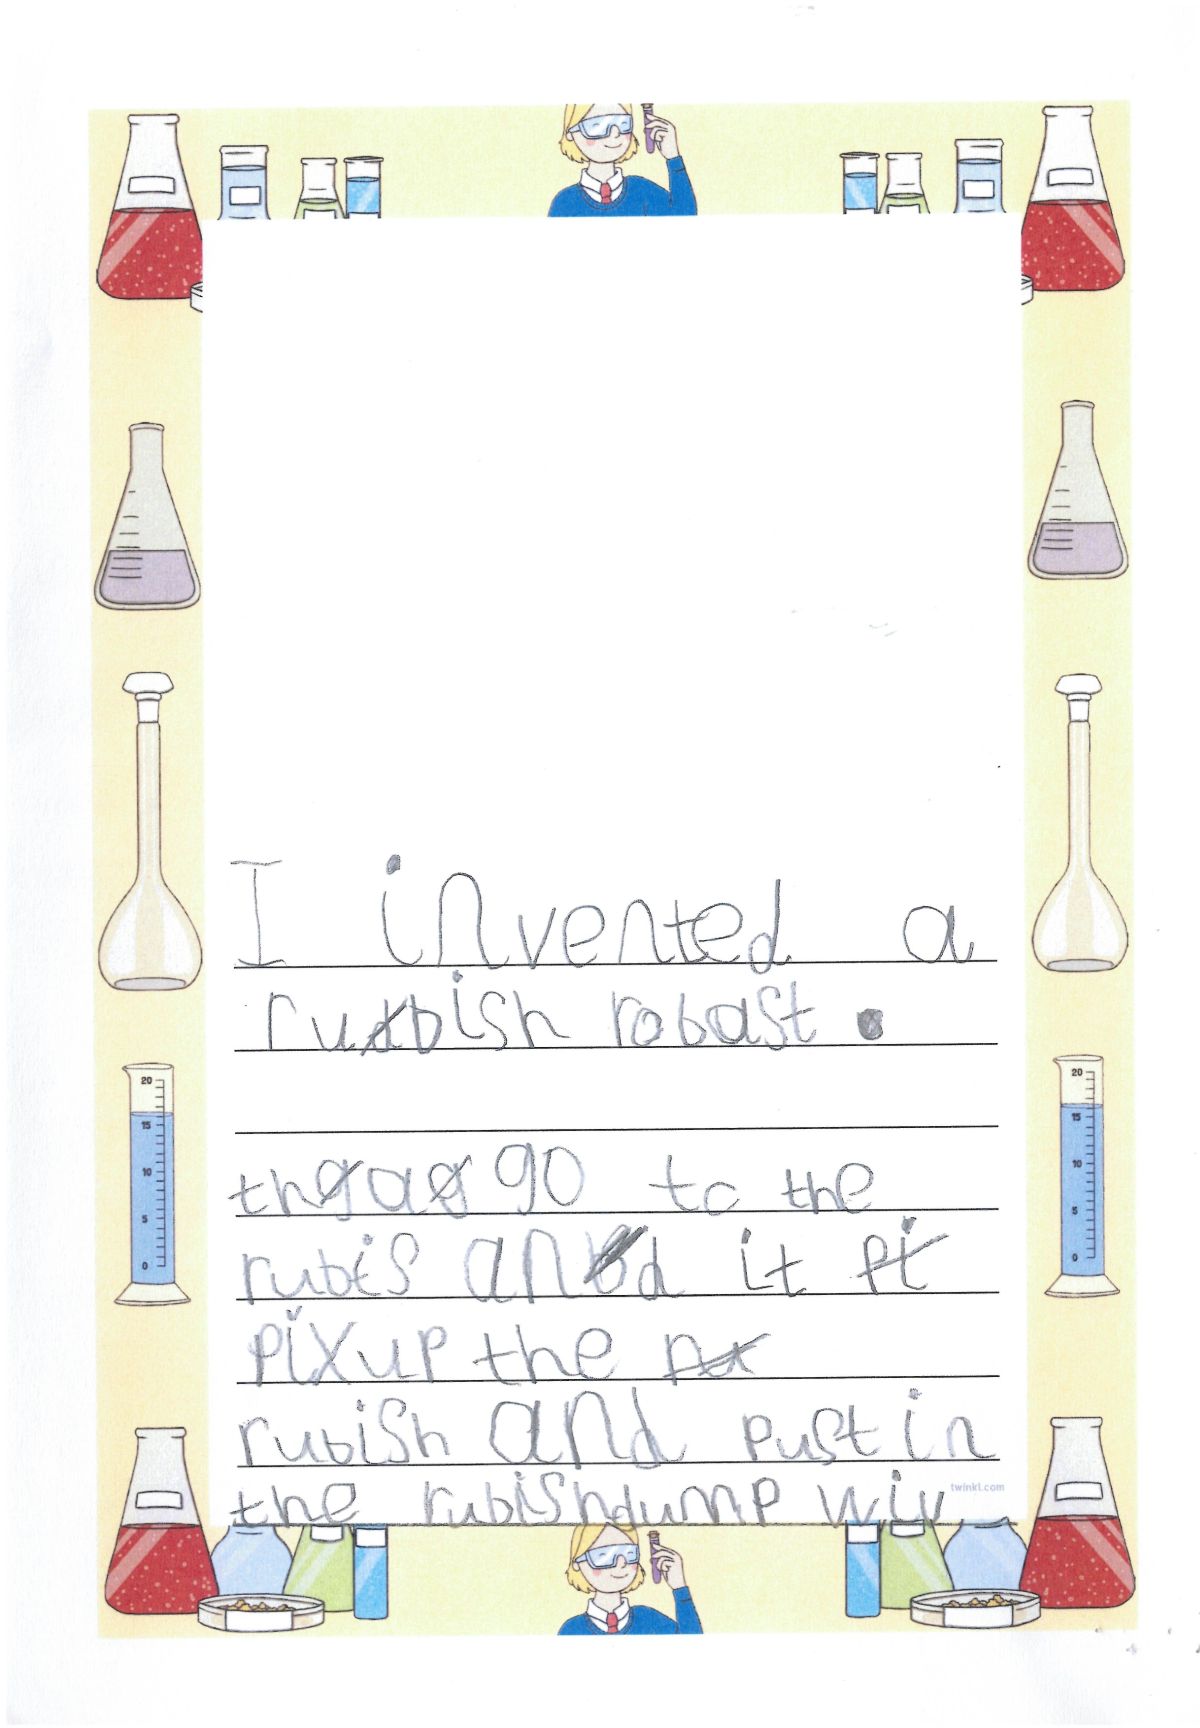 20
15
10
5
0
20
15
10
5
0
I invented a
rubish robast.
th a go to the
rubis and it
pix up the
rubish and pust in
the rubishdump wiv
twinkl.com